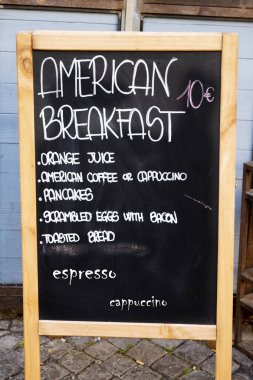 AMERICAN 10€
BREAKFAST
• ORANGE JUICE
• AMERICAN COFFEE OR CAPPUCCINO
• PANCAKES
• SCRAMBLED EGGS WITH BACON
• TOASTED BREAD
espresso
cappuccino